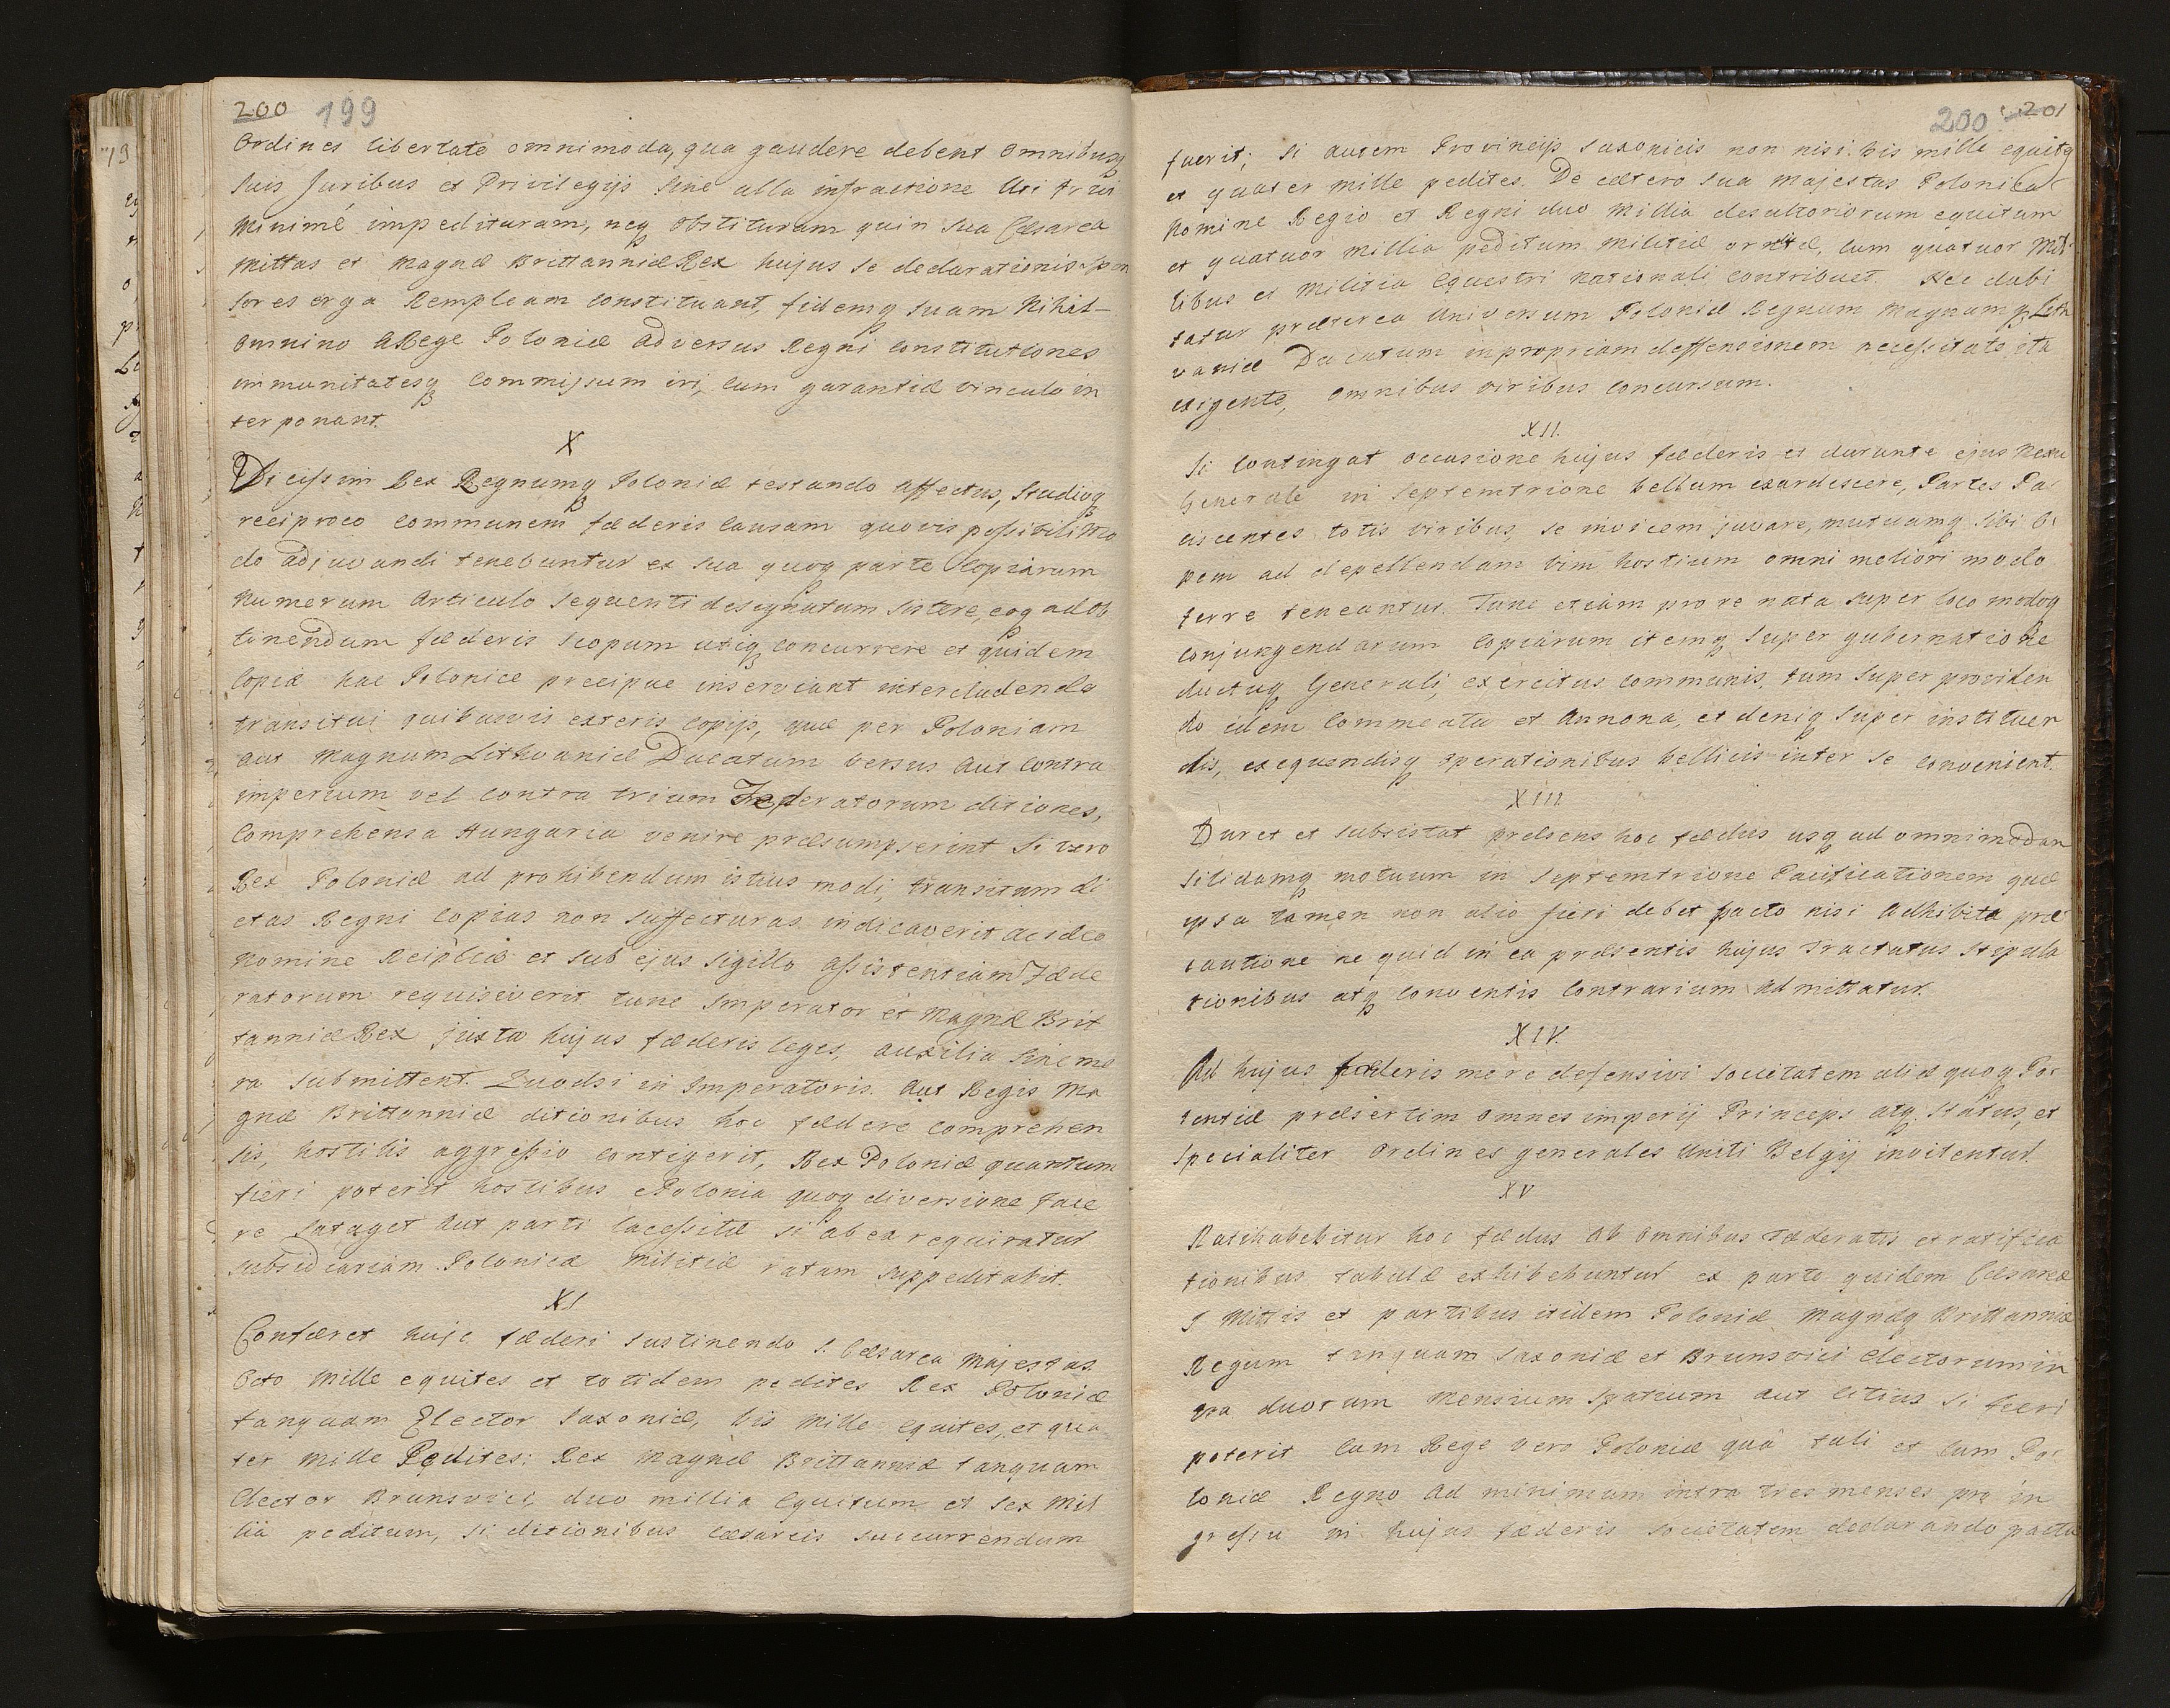 200 199
Ordines libertate omnimoda, qua gaudere debent omnibusq
suis Juribus et Privilegijs sine ulla infractione Uti frui
minimé impedituram, neq obstituram quin sua Cæsarea
Mittas et Magnæ Brittanniæ Rex hujus se declarationis spon
sores erga Rempleam constituant, fidemq suam Nihil
omnino a Rege Poloniæ adversus Regni constitutiones
immunitatesq commissum iri, cum garantiæ vinculo in
terponant.
X
Vicissim Rex Regnumq Poloniæ testando affectus, studioq
reciproco communem fæderis causam quovis possibili Mo
do adjuvandi tenebuntur ex sua quoq parte Copiarum
Numerum Articulo sequenti designatum sistere, eoq ad ob
tinendum fæderis scopum utiq concurrere et quidem
Copiæ hæ Polonicæ precipue inserviant intercludendo
transitui quibusvis exteris copijs, quæ per Poloniam
aut Magnum Lithvaniæ Ducatum versus aut contra
imperium vel contra trium Fæderatorum ditiones,
Comprehensa Hungaria venire præsumpserint Si vero
Rex Poloniæ ad prohibendum istius modi, transitum di
ctas Regni copias non suffecturas indicaverit ac ideo
Nomine Reiplcæ et sub ejus sigillo assistentiam Fæde
ratorum requisiverit tunc Imperator et Magnæ Brit
tanniæ Rex juxta hujus fæderis leges, auxilia sine mo
ra submittent. Quodsi in Imperatoris. Aut Regis Ma
gnæ Brittanniæ ditionibus hoc fædere comprehen
sis, hostilis aggressio contigerit, Rex Poloniæ quantum
fieri poterit hostibus e Polonia quoq diversione face
re sataget Aut parti lacessitæ si ab ea requiratur
subsidiariam Polonicæ Militiæ ratam suppeditabit.
XI
Conferet huic fæderi sustinendo S. Cæsarea Majestas
Octo Mille equites et totidem pedites Rex Poloniæ
tanquam Elector Saxoniæ, bis Mille equites, et qua
ter Mille Pedites: Rex Magnæ Brittanniæ tanquam
Elector Brunsvici, duo millia Equitum et sex mil
lia peditum, si ditionibus cæsareis succurrendum
200 201
fuerit; si autem Provincijs saxonicis non nisi bis mille equites
et quater mille pedites. De cætero sua Majestas Polonica
Nomine Regio et Regni duo Millia desultoriorum equitum
et quatuor Millia peditum Militiæ, cum quatuor Mil
libus ex Militia Equestri Nationali contribuet. Nec dubi
tatur præterea Universum Poloniæ Regnum Magnumq Lith
vaniæ Ducatum in propriam deffensionem necessitate ita
exigente, omnibus viribus concursum.
XII.
Si contingat occasione hujus fæderis et durante ejus Nexu
Generale in Septemtrione bellum exardescere, Partes Pa
ciscentes totis viribus, se invicem juvare, mutuamq sibi o
pem ad depellendam vim hostium omni meliori modo
ferre teneantur. Tunc etiam pro re nata super loco modoq
conjungendarum Copiarum itemq super gubernatione
ductuq Generali exercitus communis, tum super providen
do eidem Commeatu et Annona, et deniq super instituen
dis, exequendisq operationibus bellicis inter se convenient.
XIII
Duret et subsistat præsens hoc fædus usq ad omnimodam
solidamq motuum in Septemtrione Pacificationem quæ
ipsa tamen non alio fieri debet pacto nisi adhibita præ
cautione ne quid in ea præsentis hujus Tractatus Stipula
tionibus atq conventis contrarium admittatur.
XIV.
Ad hujus fæderis mere defensivi societatem aliæ quoq Po
tentiæ præsertim omnes imperij Princeps atq Status, et
specialiter ordines generales Uniti Belgij invitentur.
XV
Ratihabebitur hoc fædus ab omnibus Fæderatis et ratifica
tionibus tabulæ exhibebuntur ex parte quidem Cæsareæ
S Mittis et partibus itidem Poloniæ Magnæq Brittanniæ
Regum tanquam Saxoniæ et Brunsvici Electorum in
tra duorum Mensium spatium aut citius si fieri
poterit cum Rege vero Poloniæ quâ tali et cum Po
loniæ Regno ad minimum intra tres menses pro in
gressu in hujus fæderis societatem declarando pacta